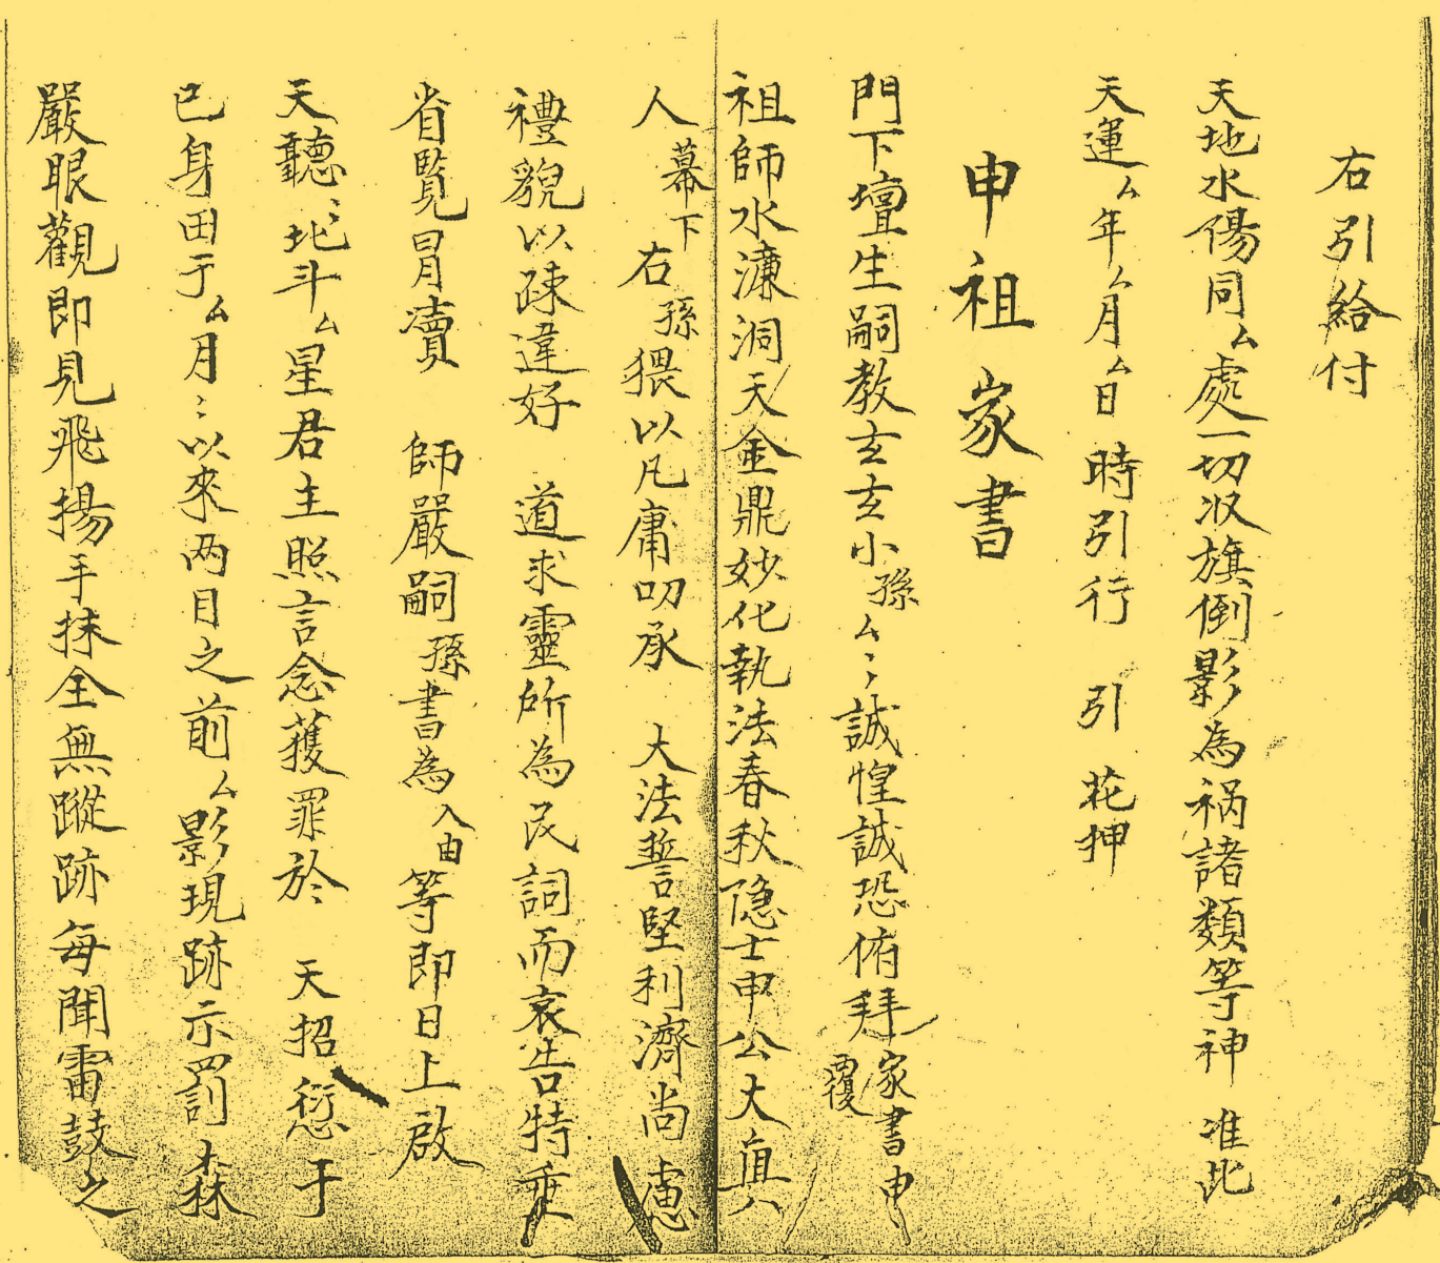 右引給付
天地水陽同厶處一切収旗倒影為禍諸類等神 准此
天運厶年厶月厶日 時引行 引 花押
申祖家書
門下壇生嗣教玄玄小孫厶〻誠惶誠恐俯拜家書申覆
祖師水濂洞天金鼎妙化執法春秋隐士申公大真
人幕下 右孫猥以凡庸叨承 大法誓堅利濟尚慮
禮貌以疎違好 道求靈所為民詞而哀告特乘
省覧冒瀆 師嚴嗣孫書為入由等即日上啟
天聽〻北斗厶星君主照言念獲罪於 天招愆于
已身田于厶月〻以來两目之前厶影現跡示罰森
嚴眼觀即見飛揚手抹全無蹤跡每聞雷鼓之